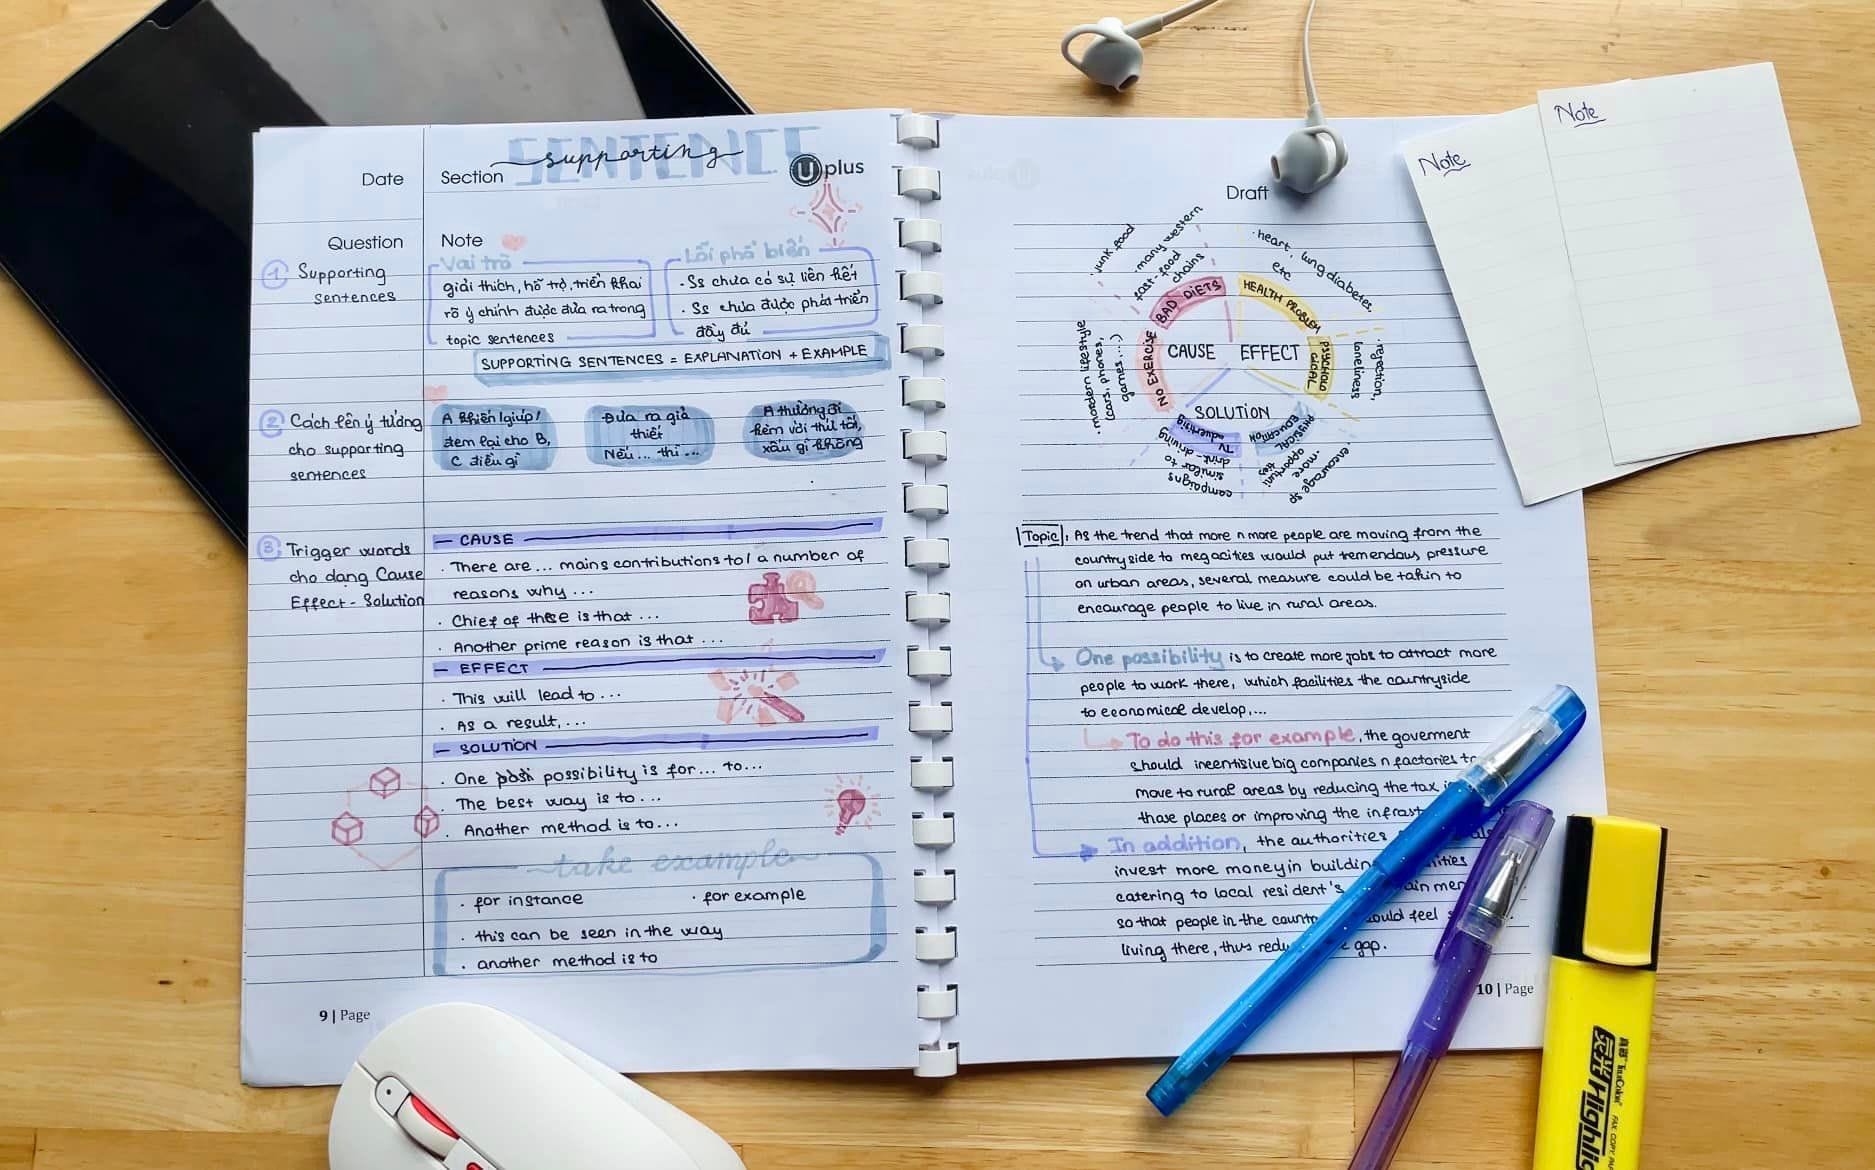 SENTENCE
supporting
Date
Section
Uplus
Question
Note
1 Supporting
sentences
Vai trò
giải thích, hỗ trợ, triển khai
rõ ý chính được đưa ra trong
topic sentences
Lỗi phổ biến
· Ss chưa có sự liên kết
· Ss chưa được phát triển
đầy đủ
SUPPORTING SENTENCES = EXPLANATION + EXAMPLE
2 Cách lên ý tưởng
cho supporting
sentences
A khiến/giúp/
đem lại cho B,
C điều gì
Đưa ra giả
thiết
Nếu... thì...
A thường đi
kèm với thứ tốt,
xấu gì không
3 Trigger words
cho dạng Cause
Effect - Solution
- CAUSE
· There are ... mains contributions to/ a number of
reasons why...
· Chief of these is that ...
· Another prime reason is that ...
- EFFECT
· This will lead to ...
· As a result, ...
- SOLUTION
· One possibility is for... to...
· The best way is to...
· Another method is to...
take example
· for instance
· for example
· this can be seen in the way
· another method is to
9 | Page
Draft
· junk food
· many western
fast-food
chains
· heart, lung diabetes,
etc
BAD DIETS
HEALTH PROBLEM
· mordern lifestyle
(cars, phones,
games,...)
NO EXERCISE
CAUSE
EFFECT
PSYCHOLO
GICAL
· rejection,
loneliness
SOLUTION
TV
adverting
PHYSICAL
EDUCATION
campaigns
similar to
drink-driving
encourage sp
· more
opportuni
ties
Topic: As the trend that more n more people are moving from the
countryside to megacities would put tremendous pressure
on urban areas, several measure could be takin to
encourage people to live in rural areas.
One possibility is to create more jobs to attract more
people to work there, which facilities the countryside
to economical develop,...
To do this for example, the goverment
should incentisive big companies n factories
move to rural areas by reducing the tax
those places or improving the
In addition, the authorities
invest more money in
catering to local resident's
so that people in the feel
living there, thus gap.
10 | Page
Note
Note
TrueColor
FAX COPY